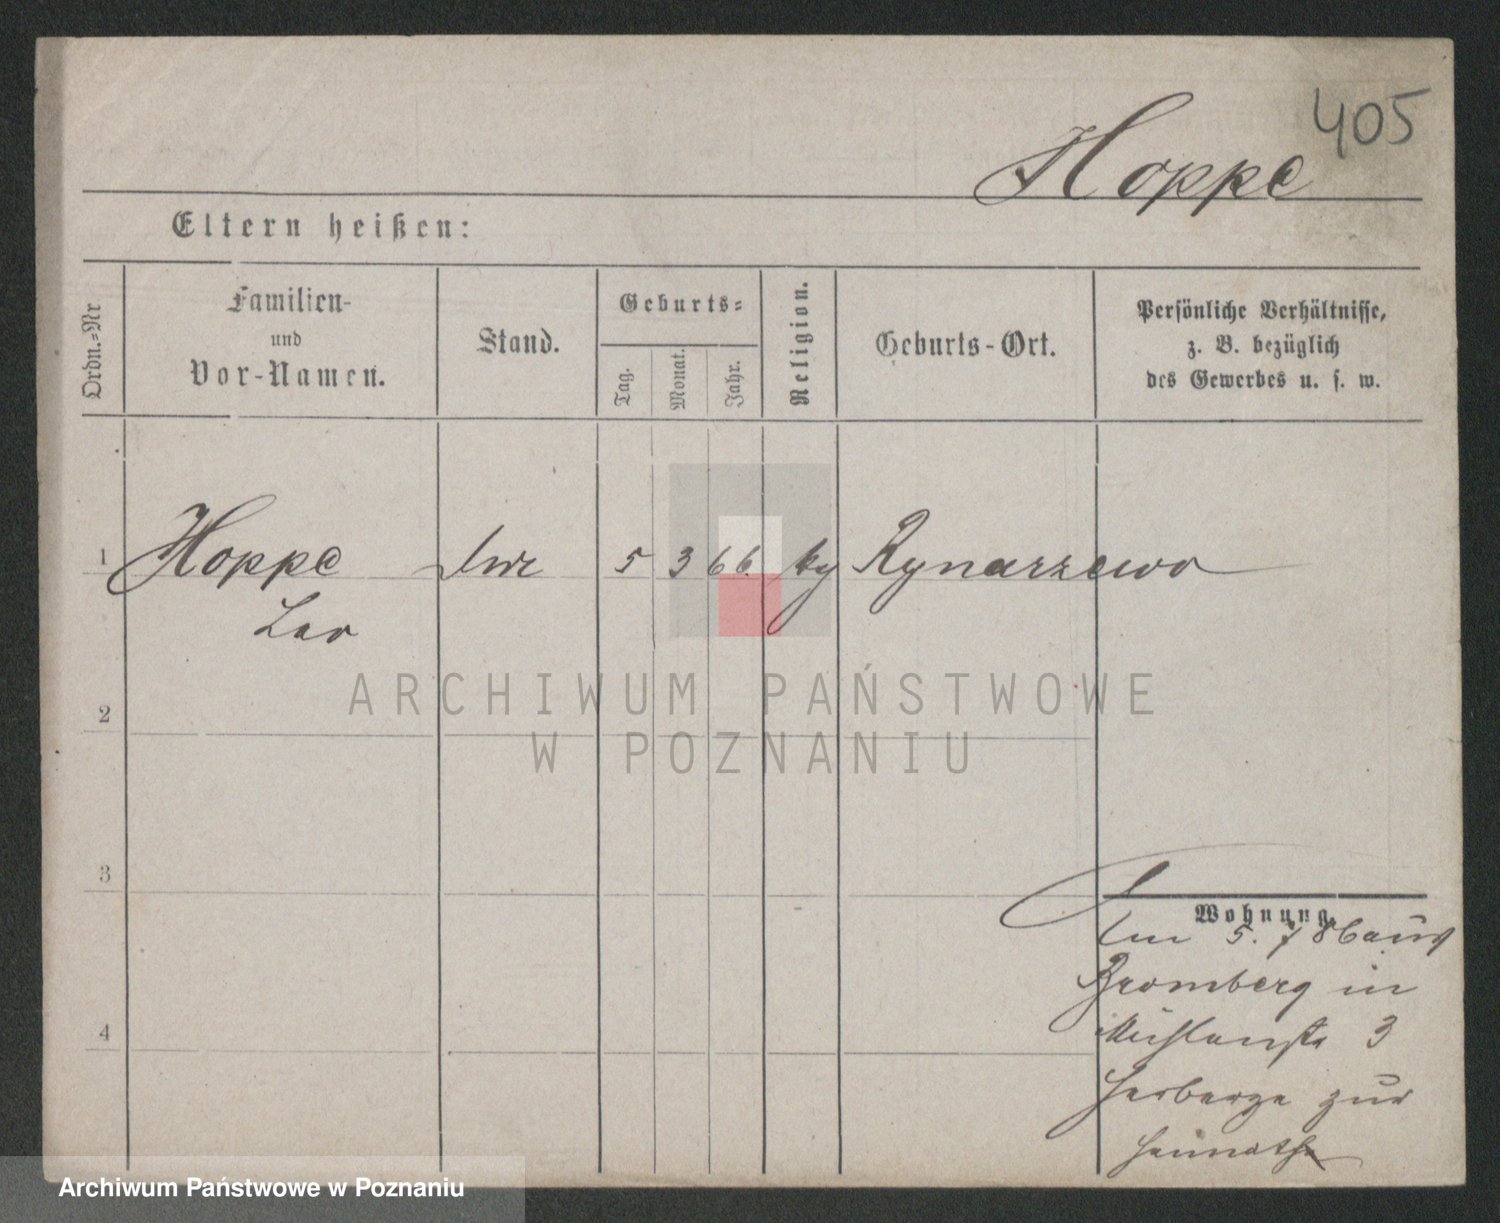 405
Hoppe
Eltern heißen:
Ordn.-Nr
Familien-
und
Vor-Namen.
Stand.
Geburts-
Tag.
Monat.
Jahr.
Religion.
Geburts-Ort.
Persönliche Verhältnisse,
z. B. bezüglich
des Gewerbes u. s. w.
1 Hoppe 5 3 66. Rynarzewo
Leo
ARCHIWUM PAŃSTWOWE
2
W POZNANIU
3
Wohnung.
5. 7 86 aus
Bromberg in
4 Mühlenstr 3
Herberge zur
Heimath
Archiwum Państwowe w Poznaniu